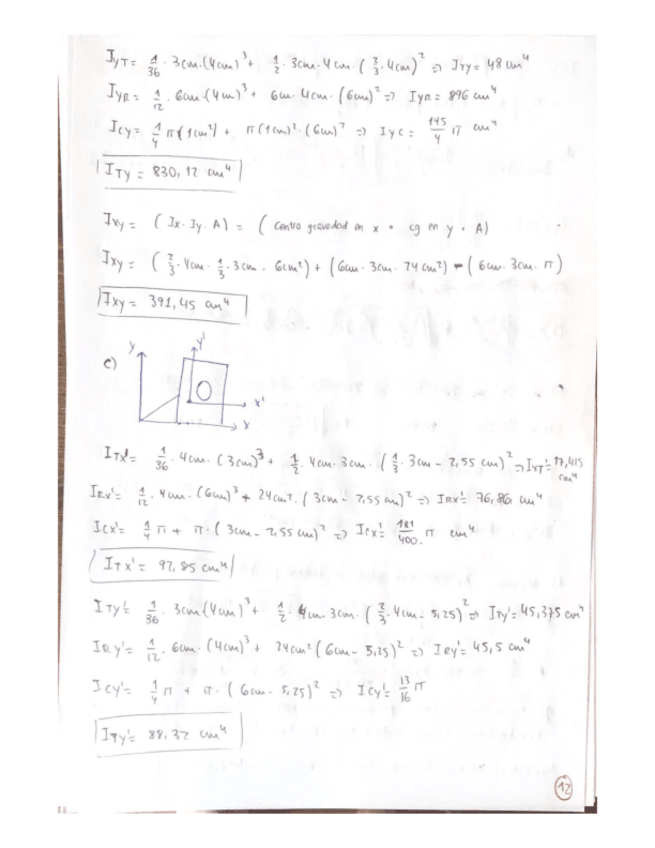 I_yT = 1/36 · 3cm·(4cm)³ + 1/2 · 3cm·4cm·(2/3·4cm)² ⇒ I_Ty = 48 cm⁴
I_yR = 1/12 · 6cm·(4cm)³ + 6cm·4cm·(6cm)² ⇒ I_yR = 896 cm⁴
I_cy = 1/4 π(1cm⁴) + π(1cm)²·(6cm)² ⇒ I_yc = 145/4 π cm⁴
I_Ty = 830,12 cm⁴
I_xy = (Ix·Iy·A) = (centro gravedad en x · cg en y · A)
I_xy = (2/3·4cm·1/3·3cm·6cm²) + (6cm·3cm·24cm²) - (6cm·3cm·π)
I_xy = 391,45 cm⁴
c)
y y'
x'
x
I_Tx' = 1/36 · 4cm·(3cm)³ + 1/2·4cm·3cm·(1/3·3cm - 2,55cm)² ⇒ I_xT' = 17,415 cm⁴
I_Rx' = 1/12 · 4cm·(6cm)³ + 24cm²·(3cm - 2,55cm)² ⇒ I_Rx' = 76,86 cm⁴
I_cx' = 1/4 π + π·(3cm - 2,55cm)² ⇒ I_cx' = 181/400 π cm⁴
I_Tx' = 92,85 cm⁴
I_Ty' = 1/36 · 3cm·(4cm)³ + 1/2·4cm·3cm·(2/3·4cm - 5,25)² ⇒ I_Ty' = 45,375 cm⁴
I_Ry' = 1/12 · 6cm·(4cm)³ + 24cm²(6cm - 5,25)² ⇒ I_Ry' = 45,5 cm⁴
I_cy' = 1/4 π + π·(6cm - 5,25)² ⇒ I_cy' = 13/16 π
I_Ty' = 88,32 cm⁴
12